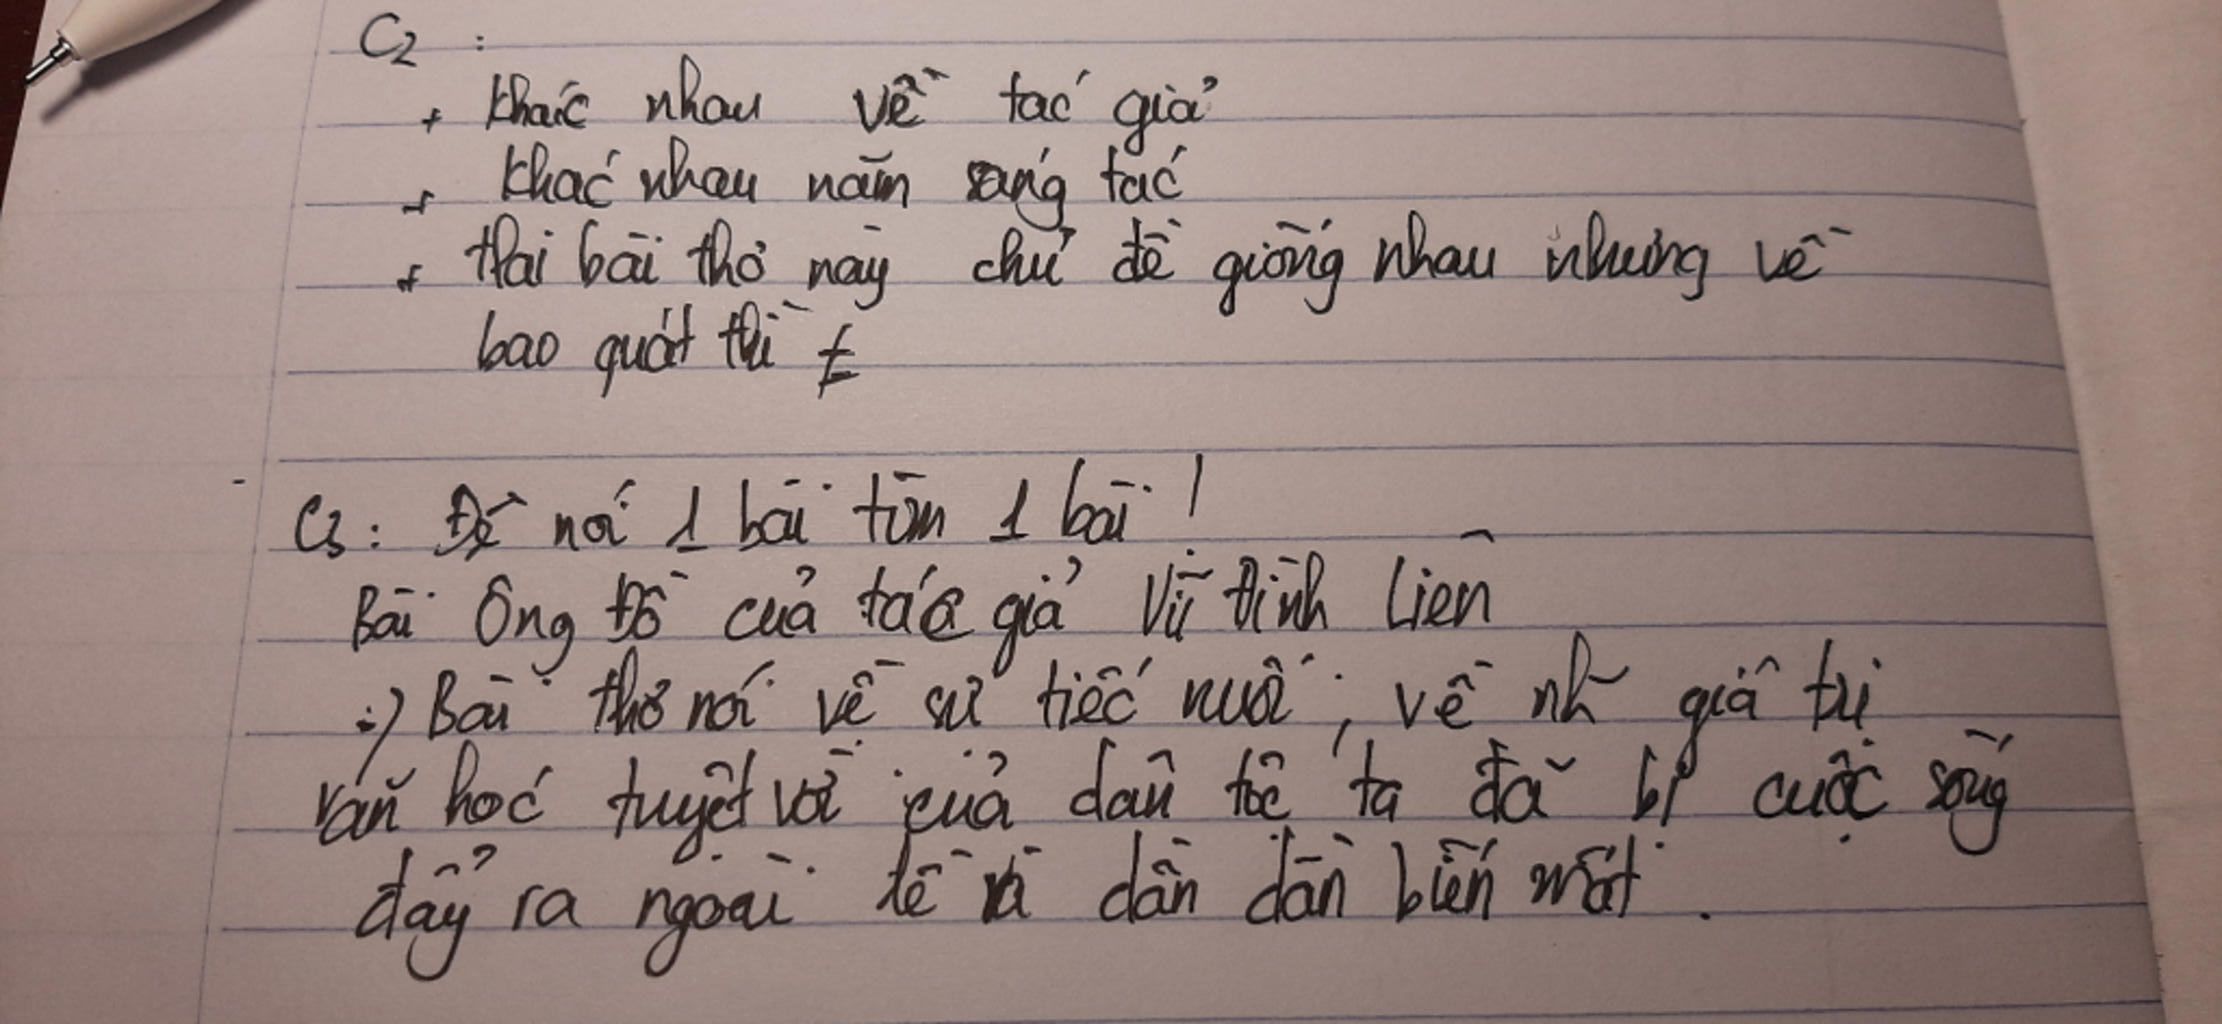 C2 :
+ khác nhau về tác giả
+ khác nhau năm sáng tác
+ Hai bài thơ này chủ đề giống nhau nhưng về
bao quát thì ≠
C3 : Đề nói 1 bài tìm 1 bài !
Bài Ông Đồ của tác giả Vũ Đình Liên
:) Bài thơ nói về sự tiếc nuối, về nh~ giá trị
văn học tuyệt vời của dân tộc ta đã bị cuộc sống
đẩy ra ngoài lề và dần dần biến mất.